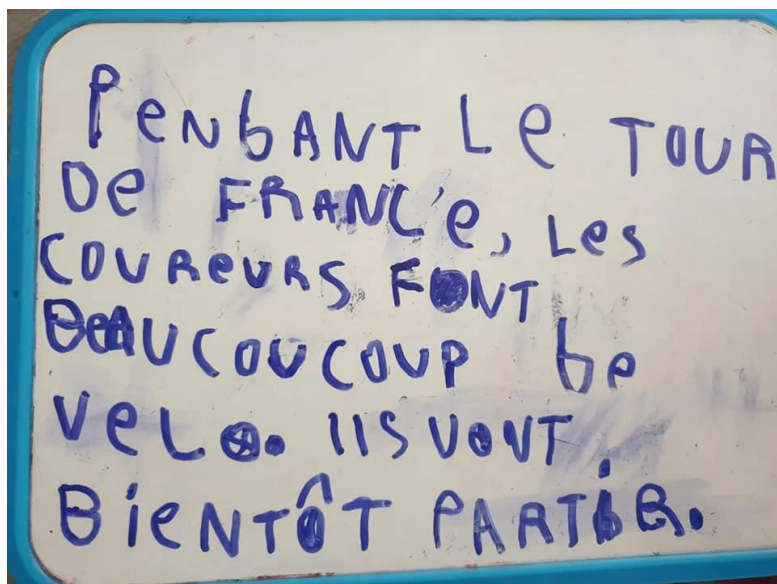 PeNbANT Le TOUR
De FRANC'e, Les
COUReURS FONT
BeAUCOUCOUP be
VeLO. IlS VONT
BieNTÔT PARTiR.